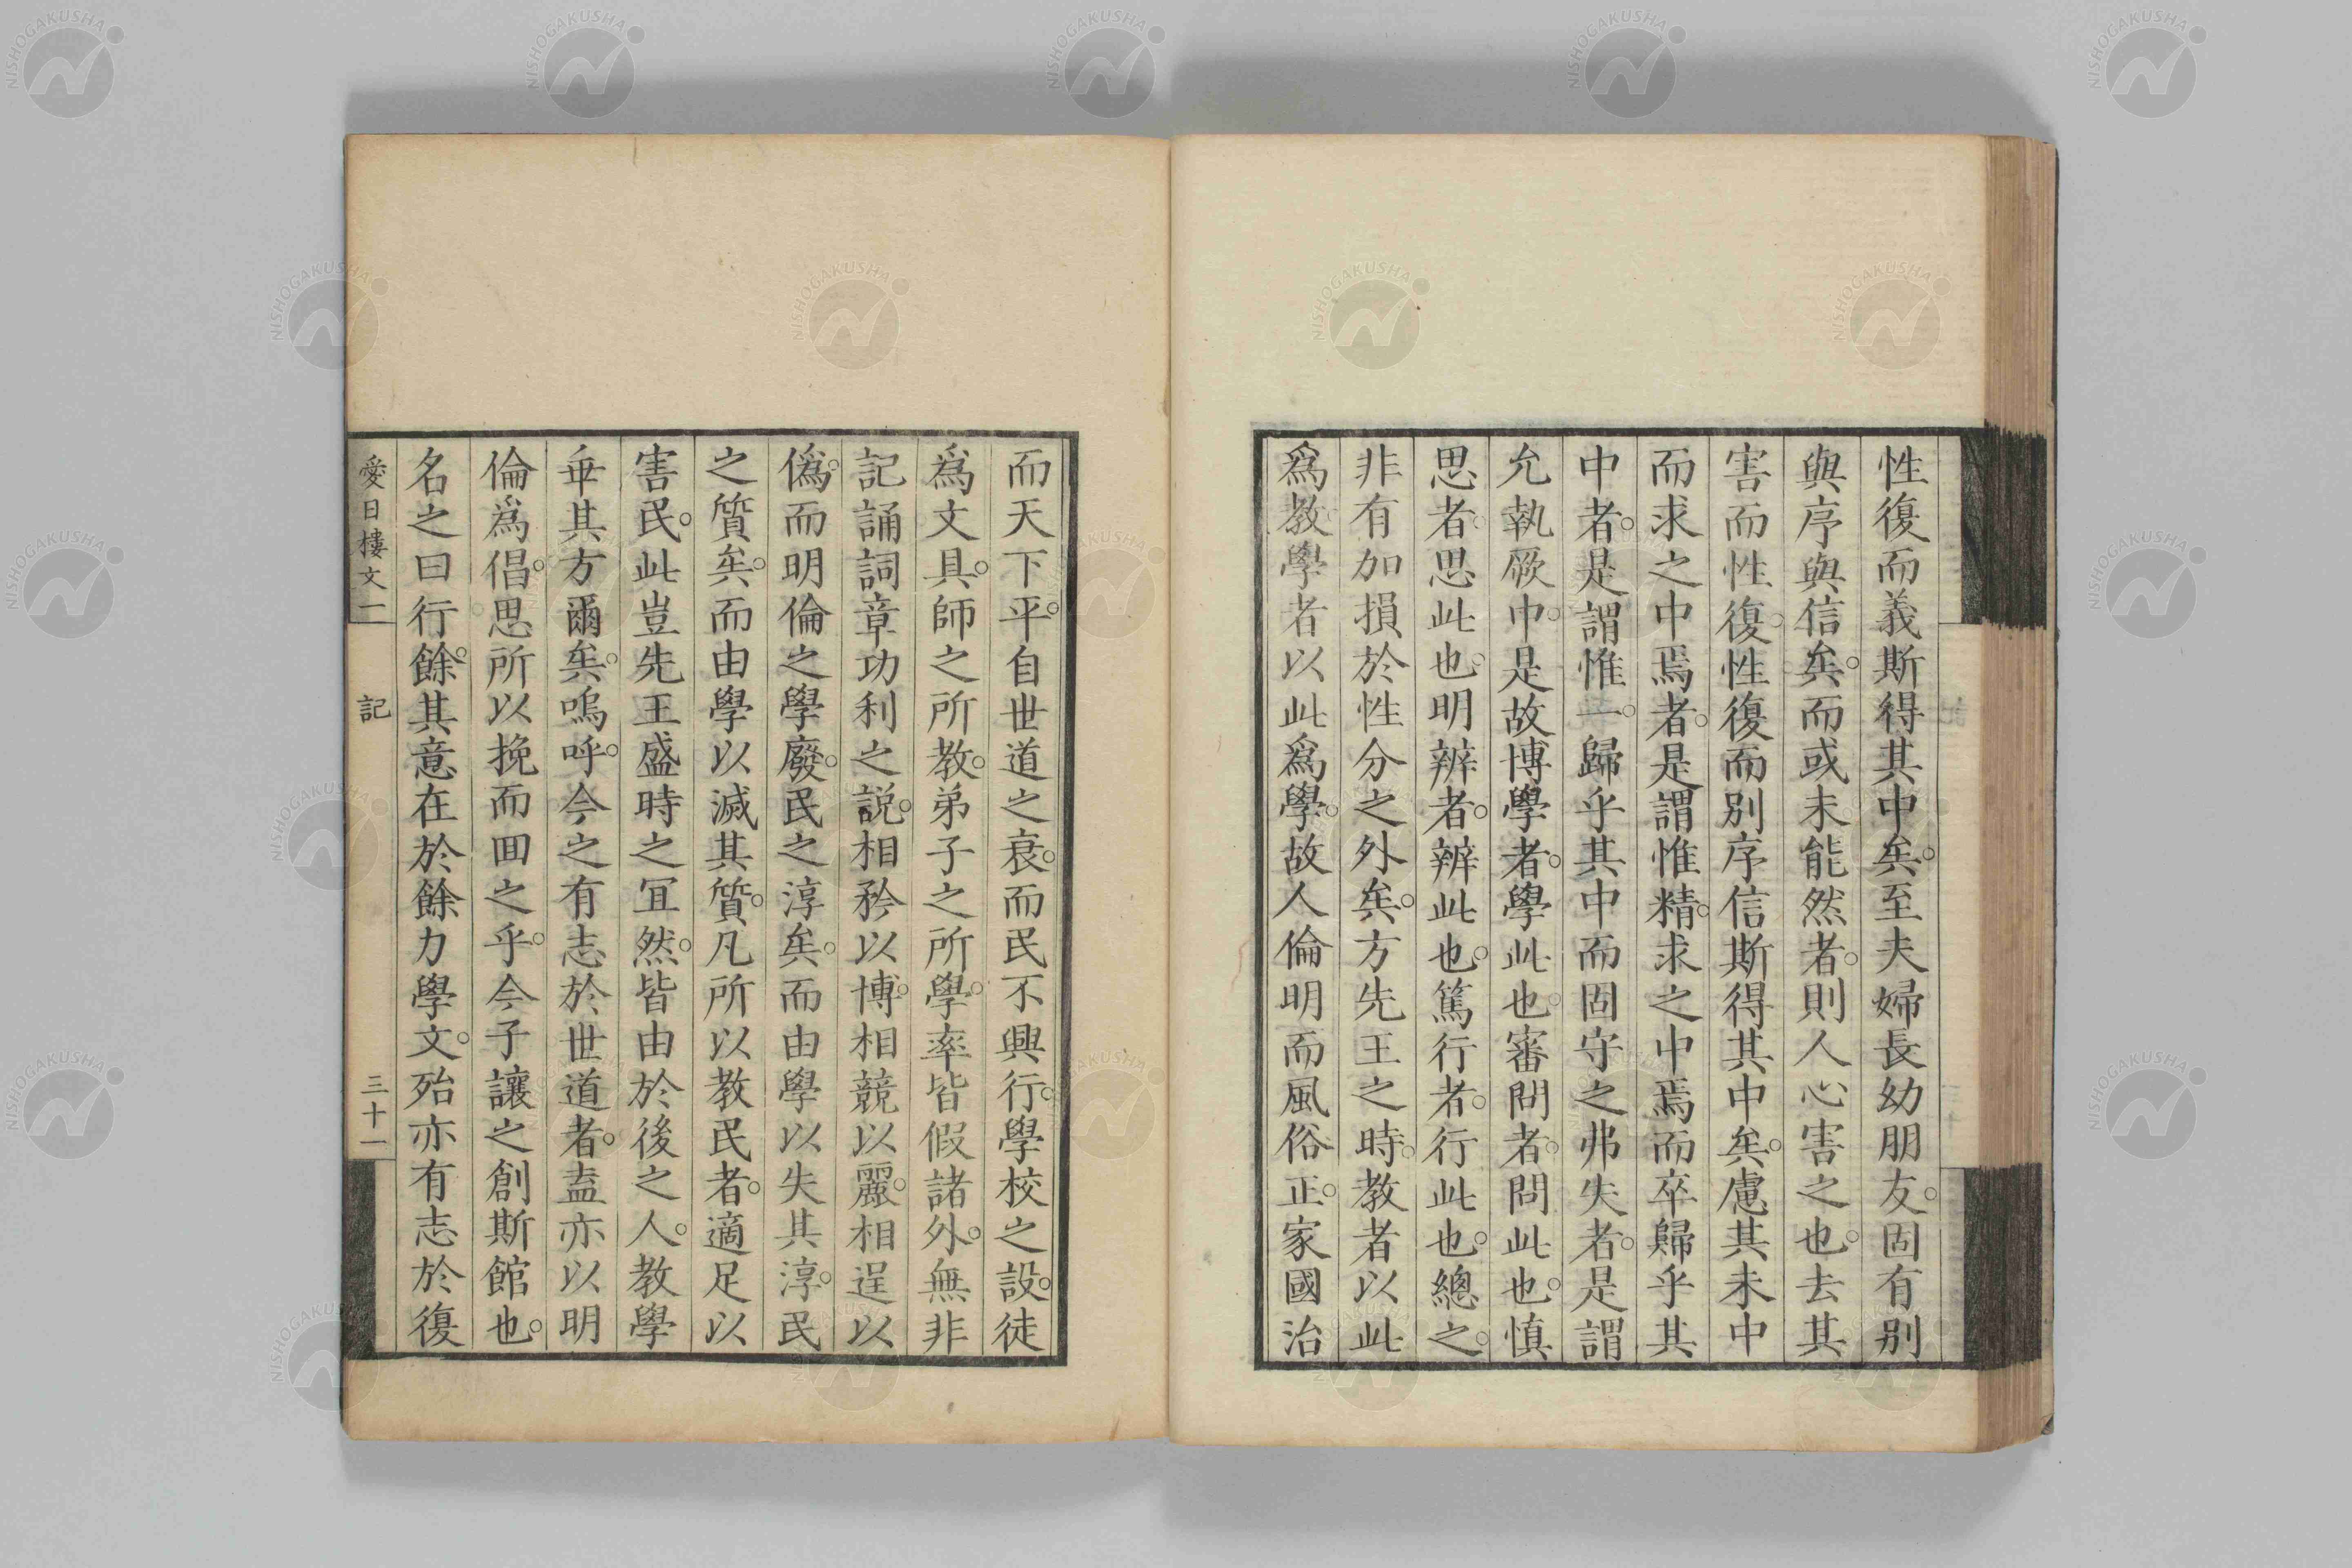 性復而義斯得其中矣。至夫婦長幼朋友。固有別
與序與信矣。而或未能然者。則人心害之也。去其
害而性復。性復而別序信斯得其中矣。慮其未中
而求之中焉者。是謂惟精。求之中焉而卒歸乎其
中者。是謂惟一。歸乎其中而固守之弗失者。是謂
允執厥中。是故博學者。學此也。審問者。問此也。慎
思者。思此也。明辨者。辨此也。篤行者。行此也。總之。
非有加損於性分之外矣。方先王之時。教者以此
爲教。學者以此爲學。故人倫明而風俗正。家國治
而天下平。自世道之衰。而民不興行。學校之設。徒
爲文具。師之所教。弟子之所學。率皆假諸外。無非
記誦詞章功利之説。相矜以博。相競以麗。相逞以
僞。而明倫之學廢。民之淳矣。而由學以失其淳。民
之質矣。而由學以滅其質。凡所以教民者。適足以
害民。此豈先王盛時之冝然。皆由於後之人。教學
乖其方爾矣。嗚呼。今之有志於世道者。盍亦以明
倫爲倡。思所以挽而回之乎。今子讓之創斯館也。
名之曰行餘。其意在於餘力學文。殆亦有志於復
愛日樓文一 記 三十一
NISHOGAKUSHA